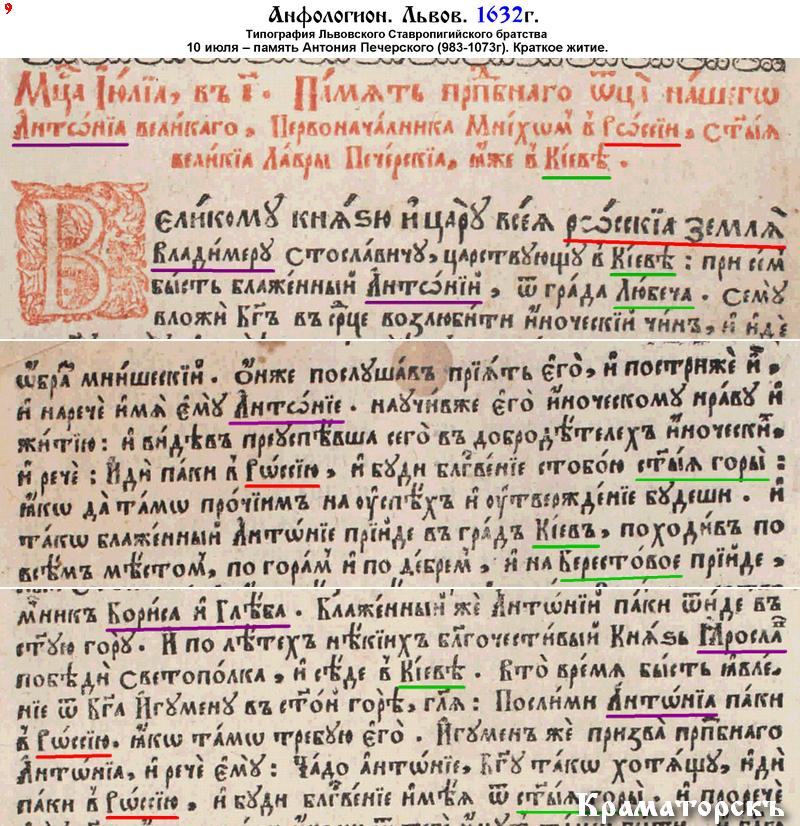 9
Анфологион. Львов. 1632г.
Типография Львовского Ставропигийского братства
10 июля – память Антония Печерского (983-1073г). Краткое житие.
Мц҃а І҆ю́лїа, въ і҃. Па́мѧть прпⷣбнаго ѿц҃а̀ на́шегѡ
Антѡ́нїа вели́каго, Первонача́лника Мни́хѡмⸯ в Рѡ́ссїи, ст҃ы́ѧ
вели́кїа Ла́вры Пече́рскїа, ꙗ҆́же в Кі́евѣ.
Вели́кому кнѧ́ѕю и҆ царю̀ всеѧ̀ рѡ́сскїа землѧ̀
Влади́меру Стосла́вичу, ца́рствующу в Кі́евѣ: при се́м
бы́сть блаже́нный А҆нтѡ́нїй, ѿ гра́да Лю́беча. Сему̀
вложѝ Бг҃ъ въ срⷣце возлюби́ти и҆́ноческїй чи́нъ, и҆ и҆́де
ѡ҆́браⷥ мни́шескїй. Ѻ҆́нже послу́шавъ прїѧ́тъ є҆го̀, и҆ пострижѐ и҆̀,
и҆ наречѐ и҆́мѧ є҆мꙋ̀ А҆нтѡ́нїе. научи́вже є҆го̀ и҆́ноческому нра́ву и҆
житїю̀: и҆ ви́дѣвъ преуспѣ́вша сего̀ въ добродѣ́телехъ и҆́ноческиⷯ,
и҆ речѐ: И҆дѝ па́ки в Рѡ́ссїю, и҆ бу́ди блгⷭ҇ве́нїе стобо́ю ст҃ы́ѧ горы̀:
ꙗ҆́кѡ да та́мѡ про́чїимъ на оу҆спѣ́хъ и҆ оу҆твержде́нїе бу́деши. И҆
та́кѡ блаже́нный А҆нтѡ́нїе прїи́де въ гра́дъ Кі́евъ, походи́въ по
всѣ́мъ мѣстоⷨ, по гора́мⸯ и҆ по де́бремⸯ, и҆ на Берестовое прїи́де,
мⷱ҇никъ Бори́са и҆ Глѣ́ба. Блаже́нный же А҆нтѡ́нїй па́ки ѿи́де въ
ст҃ую го́ру. И҆ по лѣ́техъ нѣ́киихъ благочести́вый Кнѧ́ѕь Ꙗ҆росла́ⷡ
побѣдѝ Светопо́лка, и҆ сѣ́де в Кі́евѣ. Вто вре́мѧ бы́сть ꙗ҆вле́-
нїе ѿ Бг҃а И҆гу́мену въ ст҃о́й горѣ̀, гл҃ѧ: Послими А҆нтѡ́нїа па́ки
в Рѡ́ссїю. ꙗ҆́кѡ та́мѡ тре́бую є҆го̀. И҆гу́менъ же призва̀ прпⷣбнаго
А҆нтѡ́нїа, и҆ речѐ є҆му̀: Ча́до А҆нтѡ́нїе, Бг҃у та́кѡ хотѧ́щу, и҆дѝ
па́ки в Рѡ́ссїю, и҆ бу́ди блгⷭ҇ве́нїе и҆мѣ́ѧ ѿ ст҃ы́ѧ горы̀, и҆ проречѐ
Краматорскъ